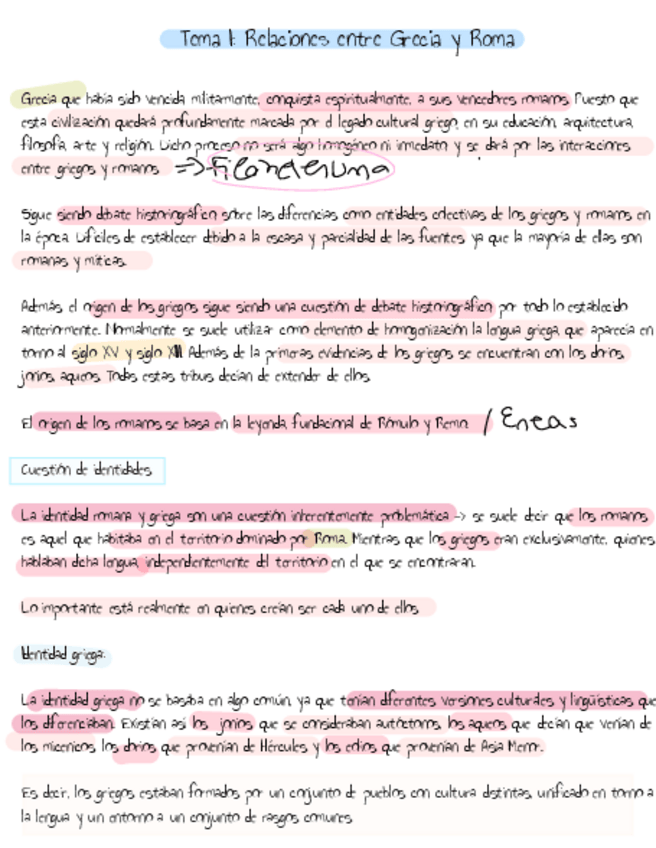 Tema 1: Relaciones entre Grecia y Roma
Grecia que había sido vencida militarmente, conquista espiritualmente, a sus vencedores romanos. Puesto que
esta civilización quedará profundamente marcada por el legado cultural griego, en su educación, arquitectura,
filosofía, arte y religión. Dicho proceso no será algo homogéneo ni inmediato y se dará por las interacciones
entre griegos y romanos =>
Sigue siendo debate historiográfico sobre las diferencias como entidades colectivas de los griegos y romanos en
la época. Difíciles de establecer debido a la escasa y parcialidad de las fuentes ya que la mayoría de ellas son
romanas y míticas.
Además, el origen de los griegos sigue siendo una cuestión de debate historiográfico por todo lo establecido
anteriormente. Normalmente se suele utilizar como elemento de homogonización la lengua griega, que aparecía en
torno al siglo XV y siglo XII. Además de la primeras evidencias de los griegos se encuentran con los dorios,
jonios, aqueos. Todas estas tribus decían de extender de ellos.
El origen de los romanos se basa en la leyenda fundacional de Rómulo y Remo. / Eneas
Cuestión de identidades
La identidad romana y griega son una cuestión inherentemente problemática -> se suele decir que los romanos
es aquel que habitaba en el territorio dominado por Roma. Mientras que los griegos eran exclusivamente, quienes
hablaban dicha lengua, independientemente del territorio en el que se encontraran.
Lo importante está realmente en quienes creían ser cada uno de ellos.
Identidad griega:
La identidad griega no se basaba en algo común, ya que tenían diferentes versiones culturales y lingüísticas que
los diferenciaban. Existían así los jonios que se consideraban autóctonos, los aqueos que decían que venían de
los micenicos los dorios que provenían de Hércules y los eolios que provenían de Asia Menor.
Es decir, los griegos estaban formados por un conjunto de pueblos con cultura distintas, unificado en torno a
la lengua y un entorno a un conjunto de rasgos comunes.